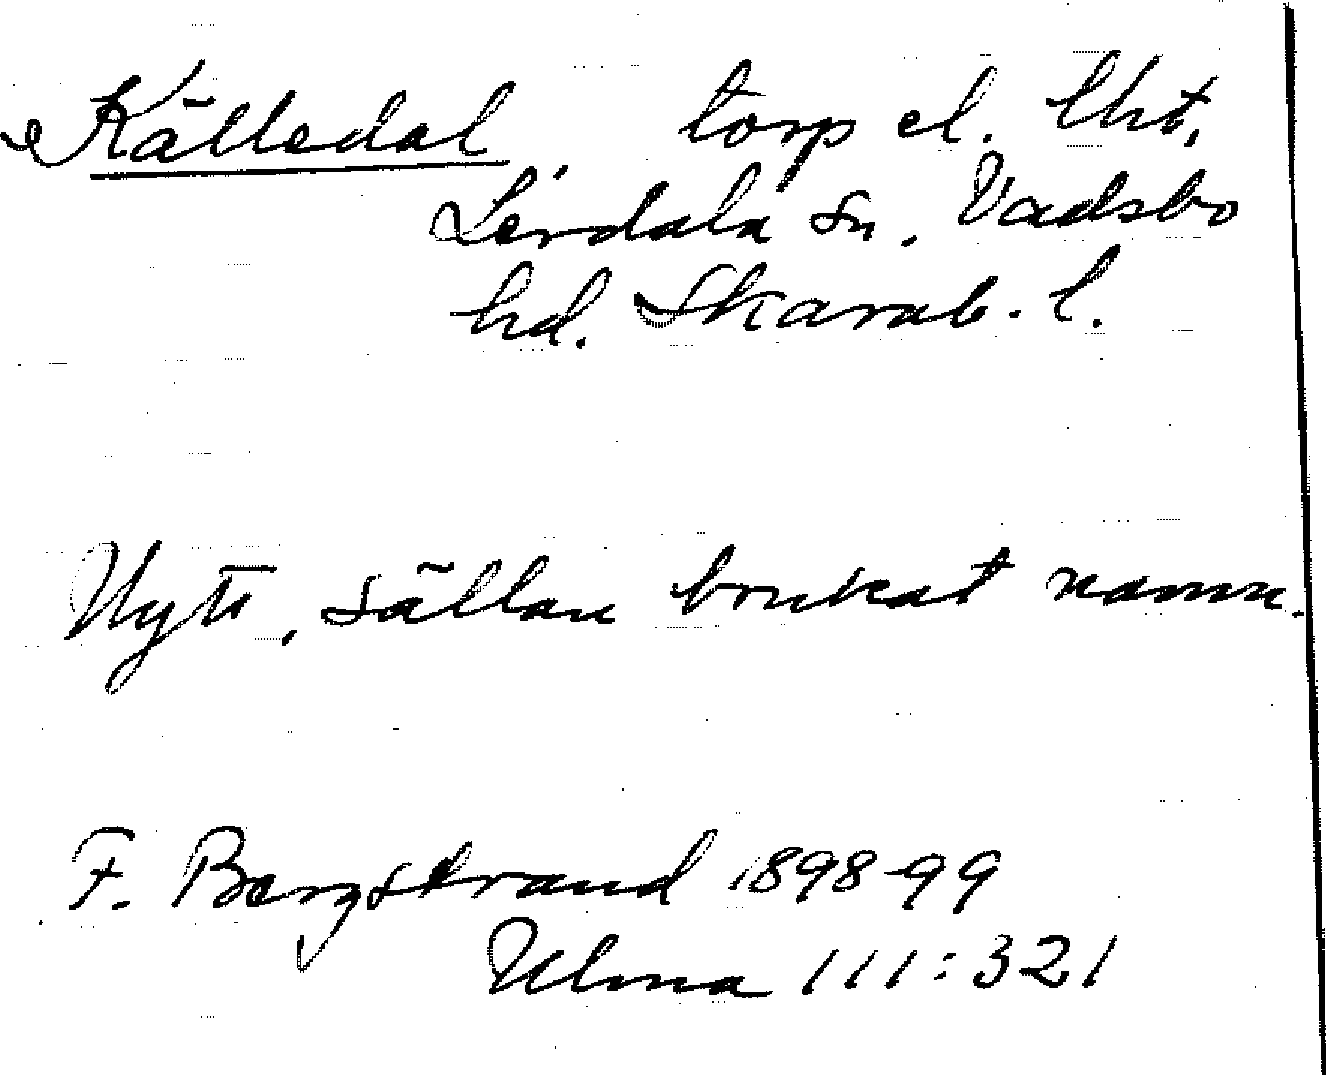 Källedal, torp el. lht,
Lerdala sn. Vadsbo
hd. Skarab. l.
Nytt, sällan brukat namn.
F. Bergstrand 1898-99
Ulma 111:321